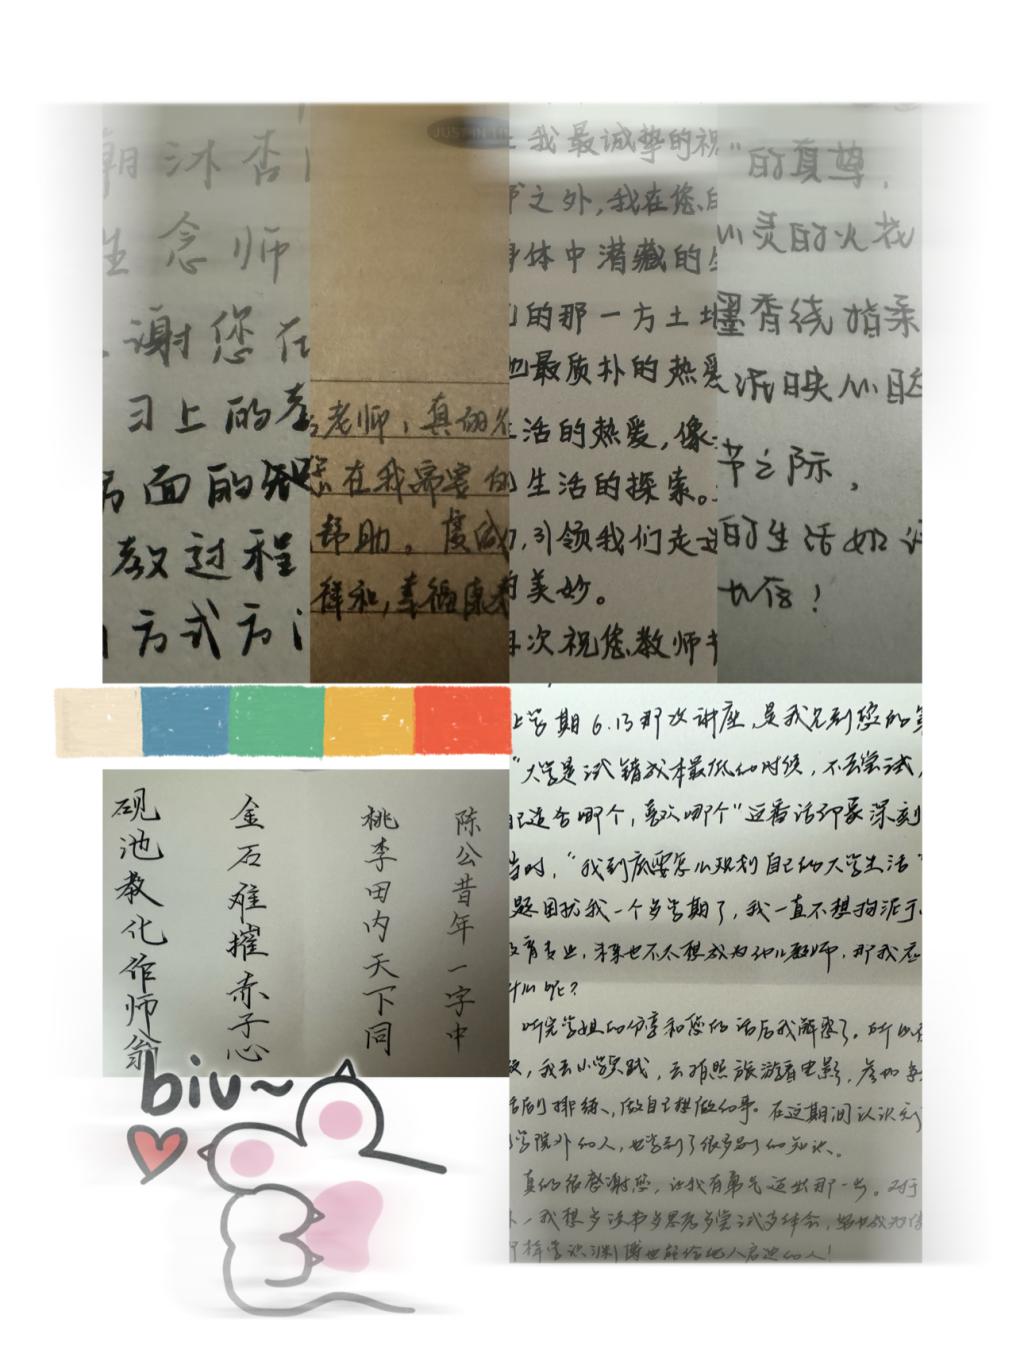 朝沐杏
生念师
谢您在
习上的孝
书面的知
教过程
方式方
老师,真的很
在我需要的
帮助。虔诚
祥和,幸福康
我最诚挚的祝
书之外,我在您的
身体中潜藏的生
们的那一方土地
也最质朴的热爱
生活的热爱,像
生活的探索。
引领我们走
的美妙。
再次祝您教师节
"的真尊,
心灵的火花
墨香绕指柔
泓映心
节之际,
的生活如诗
JUST IN
砚池教化作师翁
金石难摧赤子心
桃李田内天下同
陈公昔年一字中
上学期6.13那次讲座,是我见到您的第
"大学是试错成本最低的时候,不去尝试,
己适合哪个,喜欢哪个"这番话印象深刻
当时,"我到底要怎么规划自己的大学生活"
题困扰我一个多学期了,我一直不想拘泥于
教育专业,未来也不太想成为幼儿教师,那我应
什么呢?
听完学姐的分享和您的话后我解惑了。所以
我去小学实践,去拍照旅游看电影,参加
话剧排练、做自己想做的事。在这期间认识了
学院外的人,也学到了很多别的知识。
真的很感谢您,让我有勇气迈出那一步。对于
,我想多读书多思考多尝试多体会,努力成为像
样学识渊博也能给他人启迪的人!
biu~